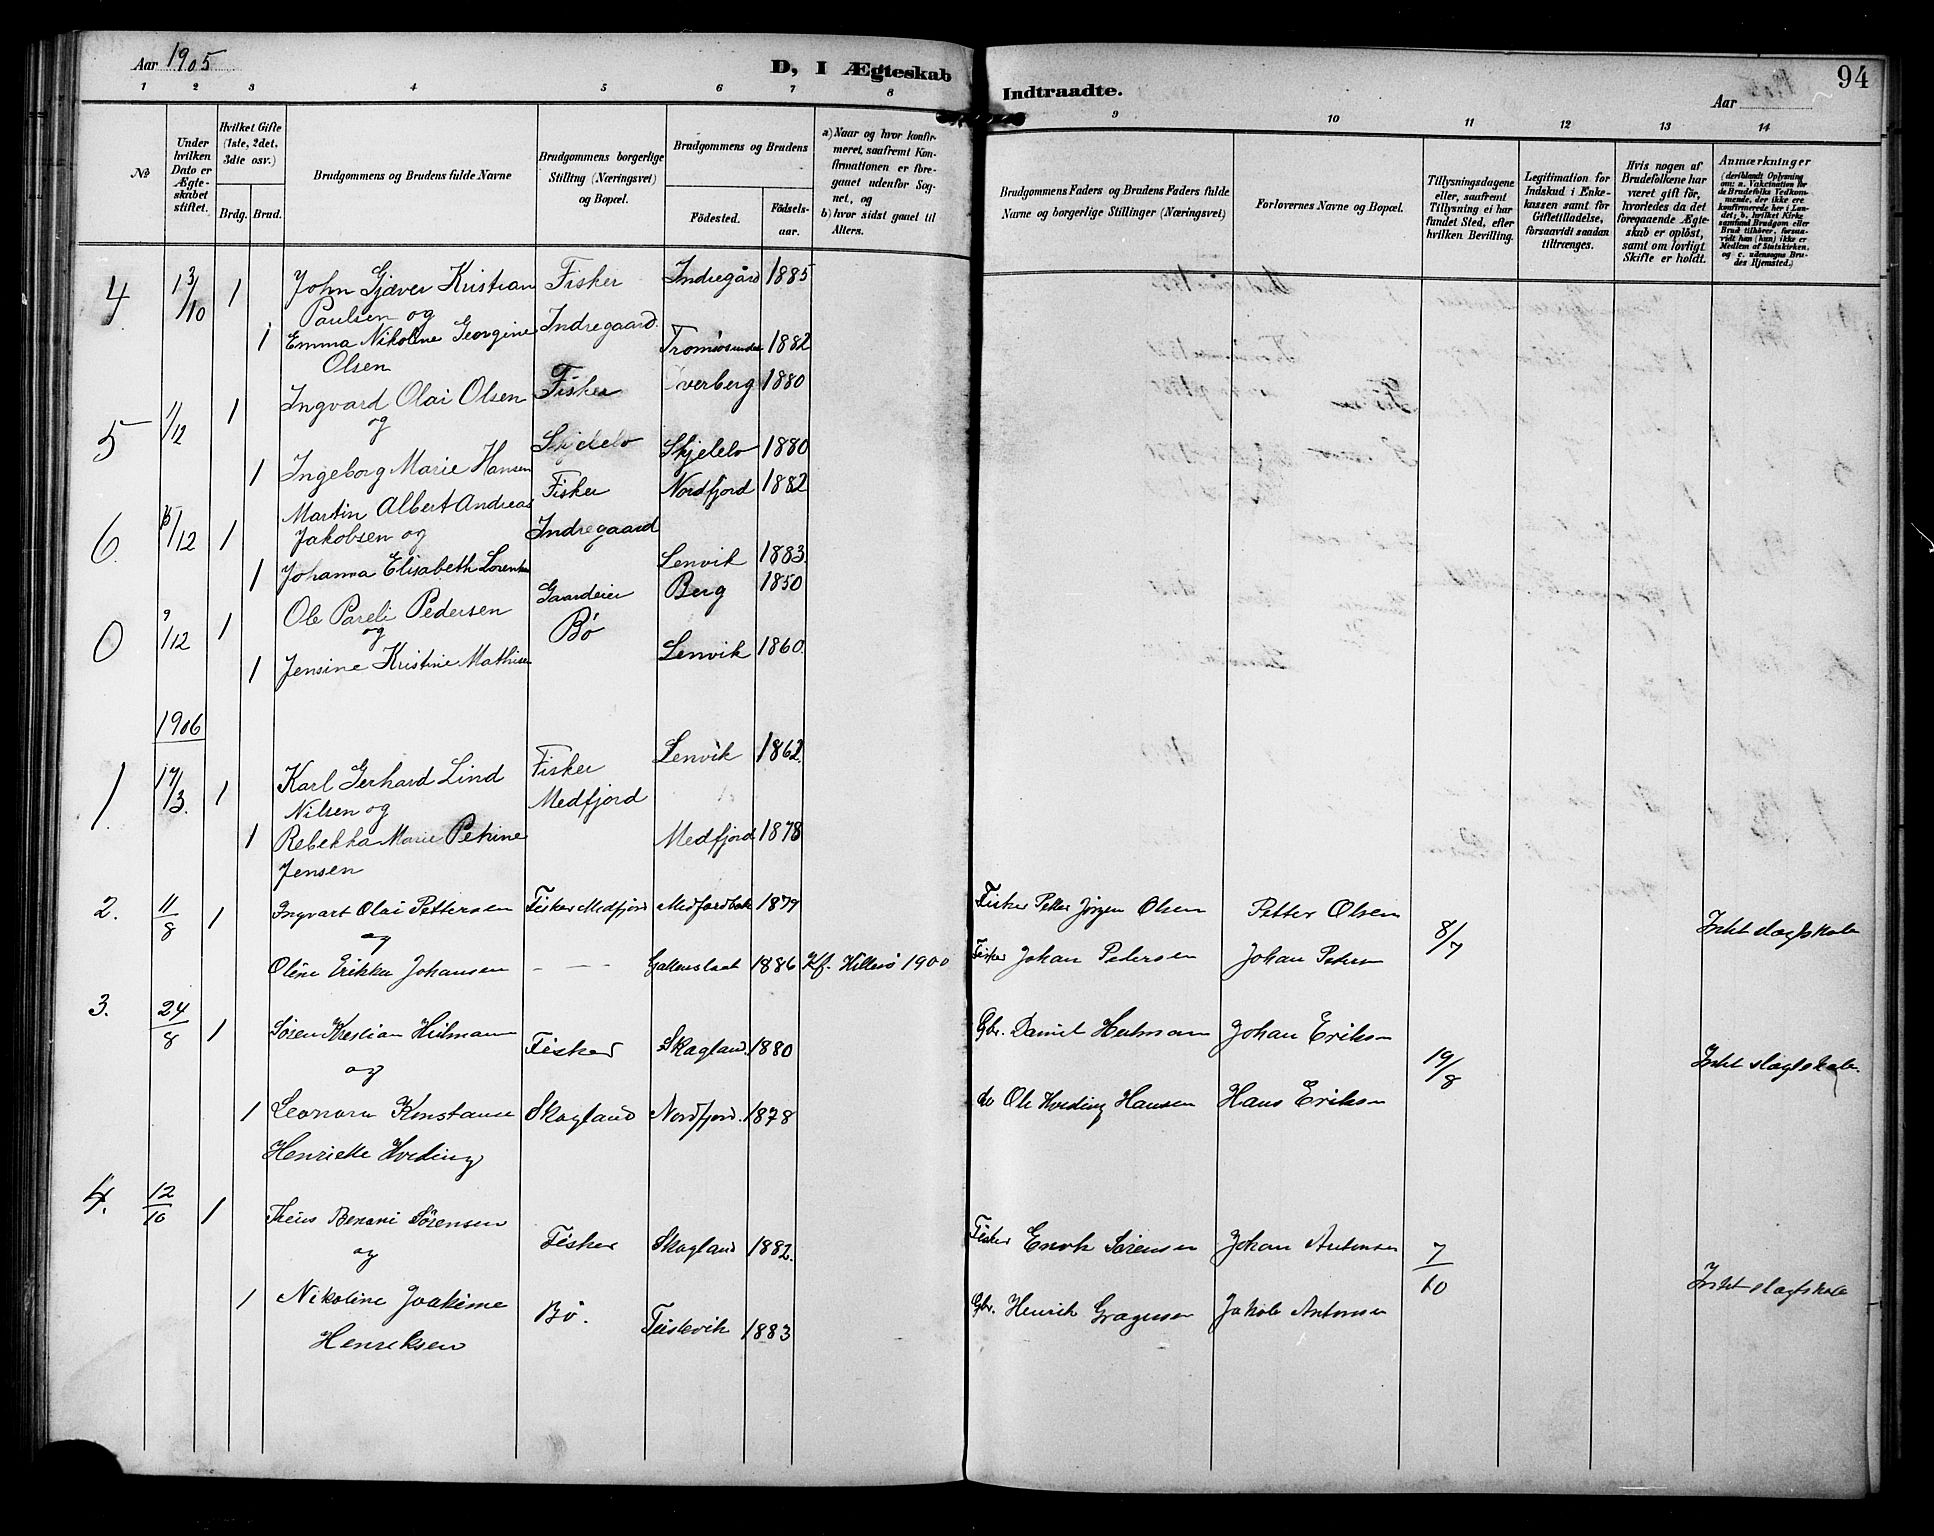 Aar 1905
D, I Ægteskab
Indtraadte.
Aar
94
1 2 3 4 5 6 7 8 9 10 11 12 13 14
No
Under hvilken Dato er Ægteskabet stiftet.
Hvilket Gifte (1ste, 2det, 3die osv.)
Brdg. Brud.
Brudgommens og Brudens fulde Navne
Brudgommens borgerlige Stilling (Næringsvei) og Bopæl.
Brudgommens og Brudens
Fødested.
Fødselsaar.
a) Naar og hvor konfirmeret, saafremt Konfirmationen er foregaaet udenfor Sognet, og
b) hvor sidst gaaet til Alters.
Brudgommens Faders og Brudens Faders fulde Navne og borgerlige Stillinger (Næringsvei)
Forlovernes Navne og Bopæl.
Tillysningsdagene eller, saafremt Tillysning ei har fundet Sted, efter hvilken Bevilling.
Legitimation for Indskud i Enkekassen samt for Giftetilladelse, forsaavidt saadan tiltrænges.
Hvis nogen af Brudefolkene har været gift før, hvorledes da det foregaaende Ægteskab er opløst, samt om lovligt Skifte er holdt.
Anmærkninger (deriblandt Oplysning om: a. Vaccination for de Brudefolks Vedkommende, der ikke ere konfirmerede her i Landet; b. hvilket Kirkesamfund Brudgom eller Brud tilhører, forsaavidt han (hun) ikke er Medlem af Statskirken, og c. udensogns Brudes Hjemsted.)
4. 13/10 1 John Gjæver Kristian Fisker Indregård 1885
Paulsen og
1 Emma Nikoline Georgine Indregaard. Tromsøsundet 1882
Olsen
5 1/12 1 Ingvard Olai Olsen Fisker verberg 1880
og
1 Ingeborg Marie Hansen Skjelelv Skjelelv 1880
6. /12 1 Martin Albert Andreas Fisker Nordfjord 1882
Jakobsen og Indregaard
1 Johanna Elisabeth Lorentsen Lenvik 1883.
0 9/12 1 Ole Pareli Pedersen Gaardeier Berg 1850
og Bø
1 Jensine Kristine Mathisen Lenvik 1860.
1906
1. 17/3. 1 Karl Gerhard Lind Fisker Lenvik 1862.
Nilsen og Medfjord
1 Rebekka Marie Petrine Medfjord 1878
Jensen
2. 11/8 1 Ingvart Olai Pettersen Fisker Medfjord Medfjordbot 1879 Fisker Petter Jørgen Olsen Petter Olsen 8/7 Intet slagtskab
og
Oline Erikka Johansen — — 1886 Kf. Hillesø 1900 Fisker Johan Petersen Johan Petersen
3. 24/8 1 Søren Kristian Hilmann Fisker Skagland. 1880 Gbr. Daniel Heilmann Johan Eriksen 19/8 Intet slagtskab.
og
1 Leonora Konstanse Skagland Nordfjord. 1878 do Ole Hveding Hansen Hans Eriksen
Henriette Hveding
4. 12/10 1 Benoni Sørensen Fisker Skagland 1882. Fisker Enok Sørensen Johan Antonsen 7/10 Intet slagtskab
og
1 Nikoline Joakime Bø. Teistevik 1883 Gbr. Henrik Jakob Antonsen
Henriksen